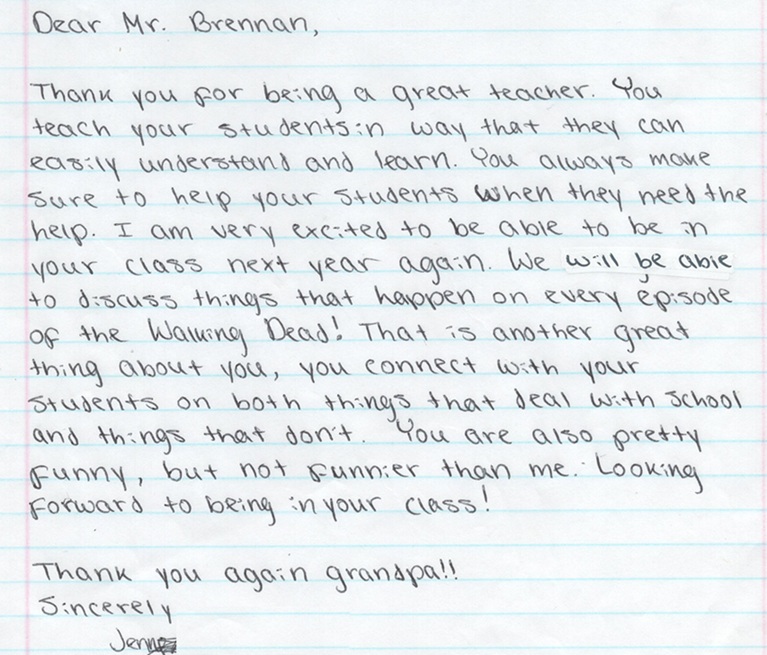 Dear Mr. Brennan,
Thank you for being a great teacher. You
teach your students in way that they can
easily understand and learn. You always make
sure to help your students when they need the
help. I am very excited to be able to be in
your class next year again. We will be able
to discuss things that happen on every episode
of the Walking Dead! That is another great
thing about you, you connect with your
students on both things that deal with school
and things that don't. You are also pretty
funny, but not funnier than me. Looking
forward to being in your class!
Thank you again grandpa!!
Sincerely